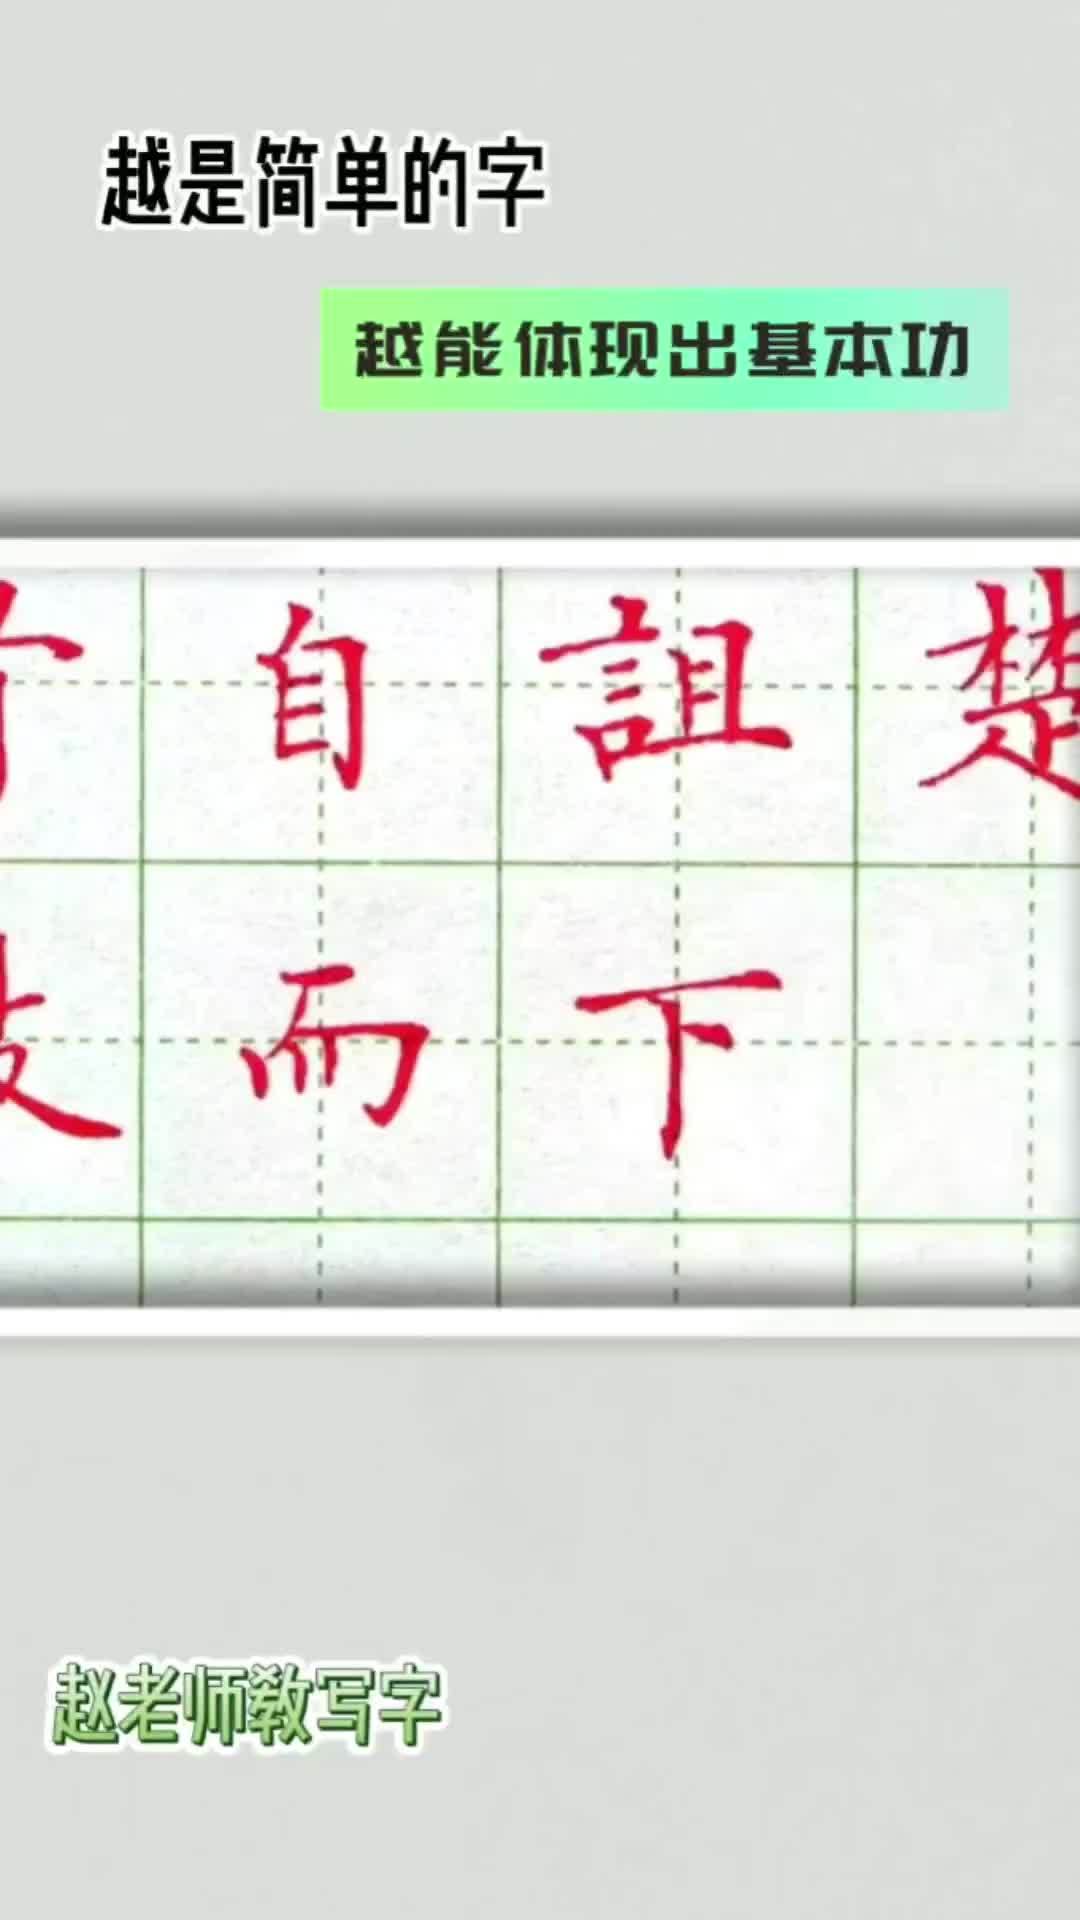 越是简单的字
越能体现出基本功
自詛楚
而下
赵老师教写字